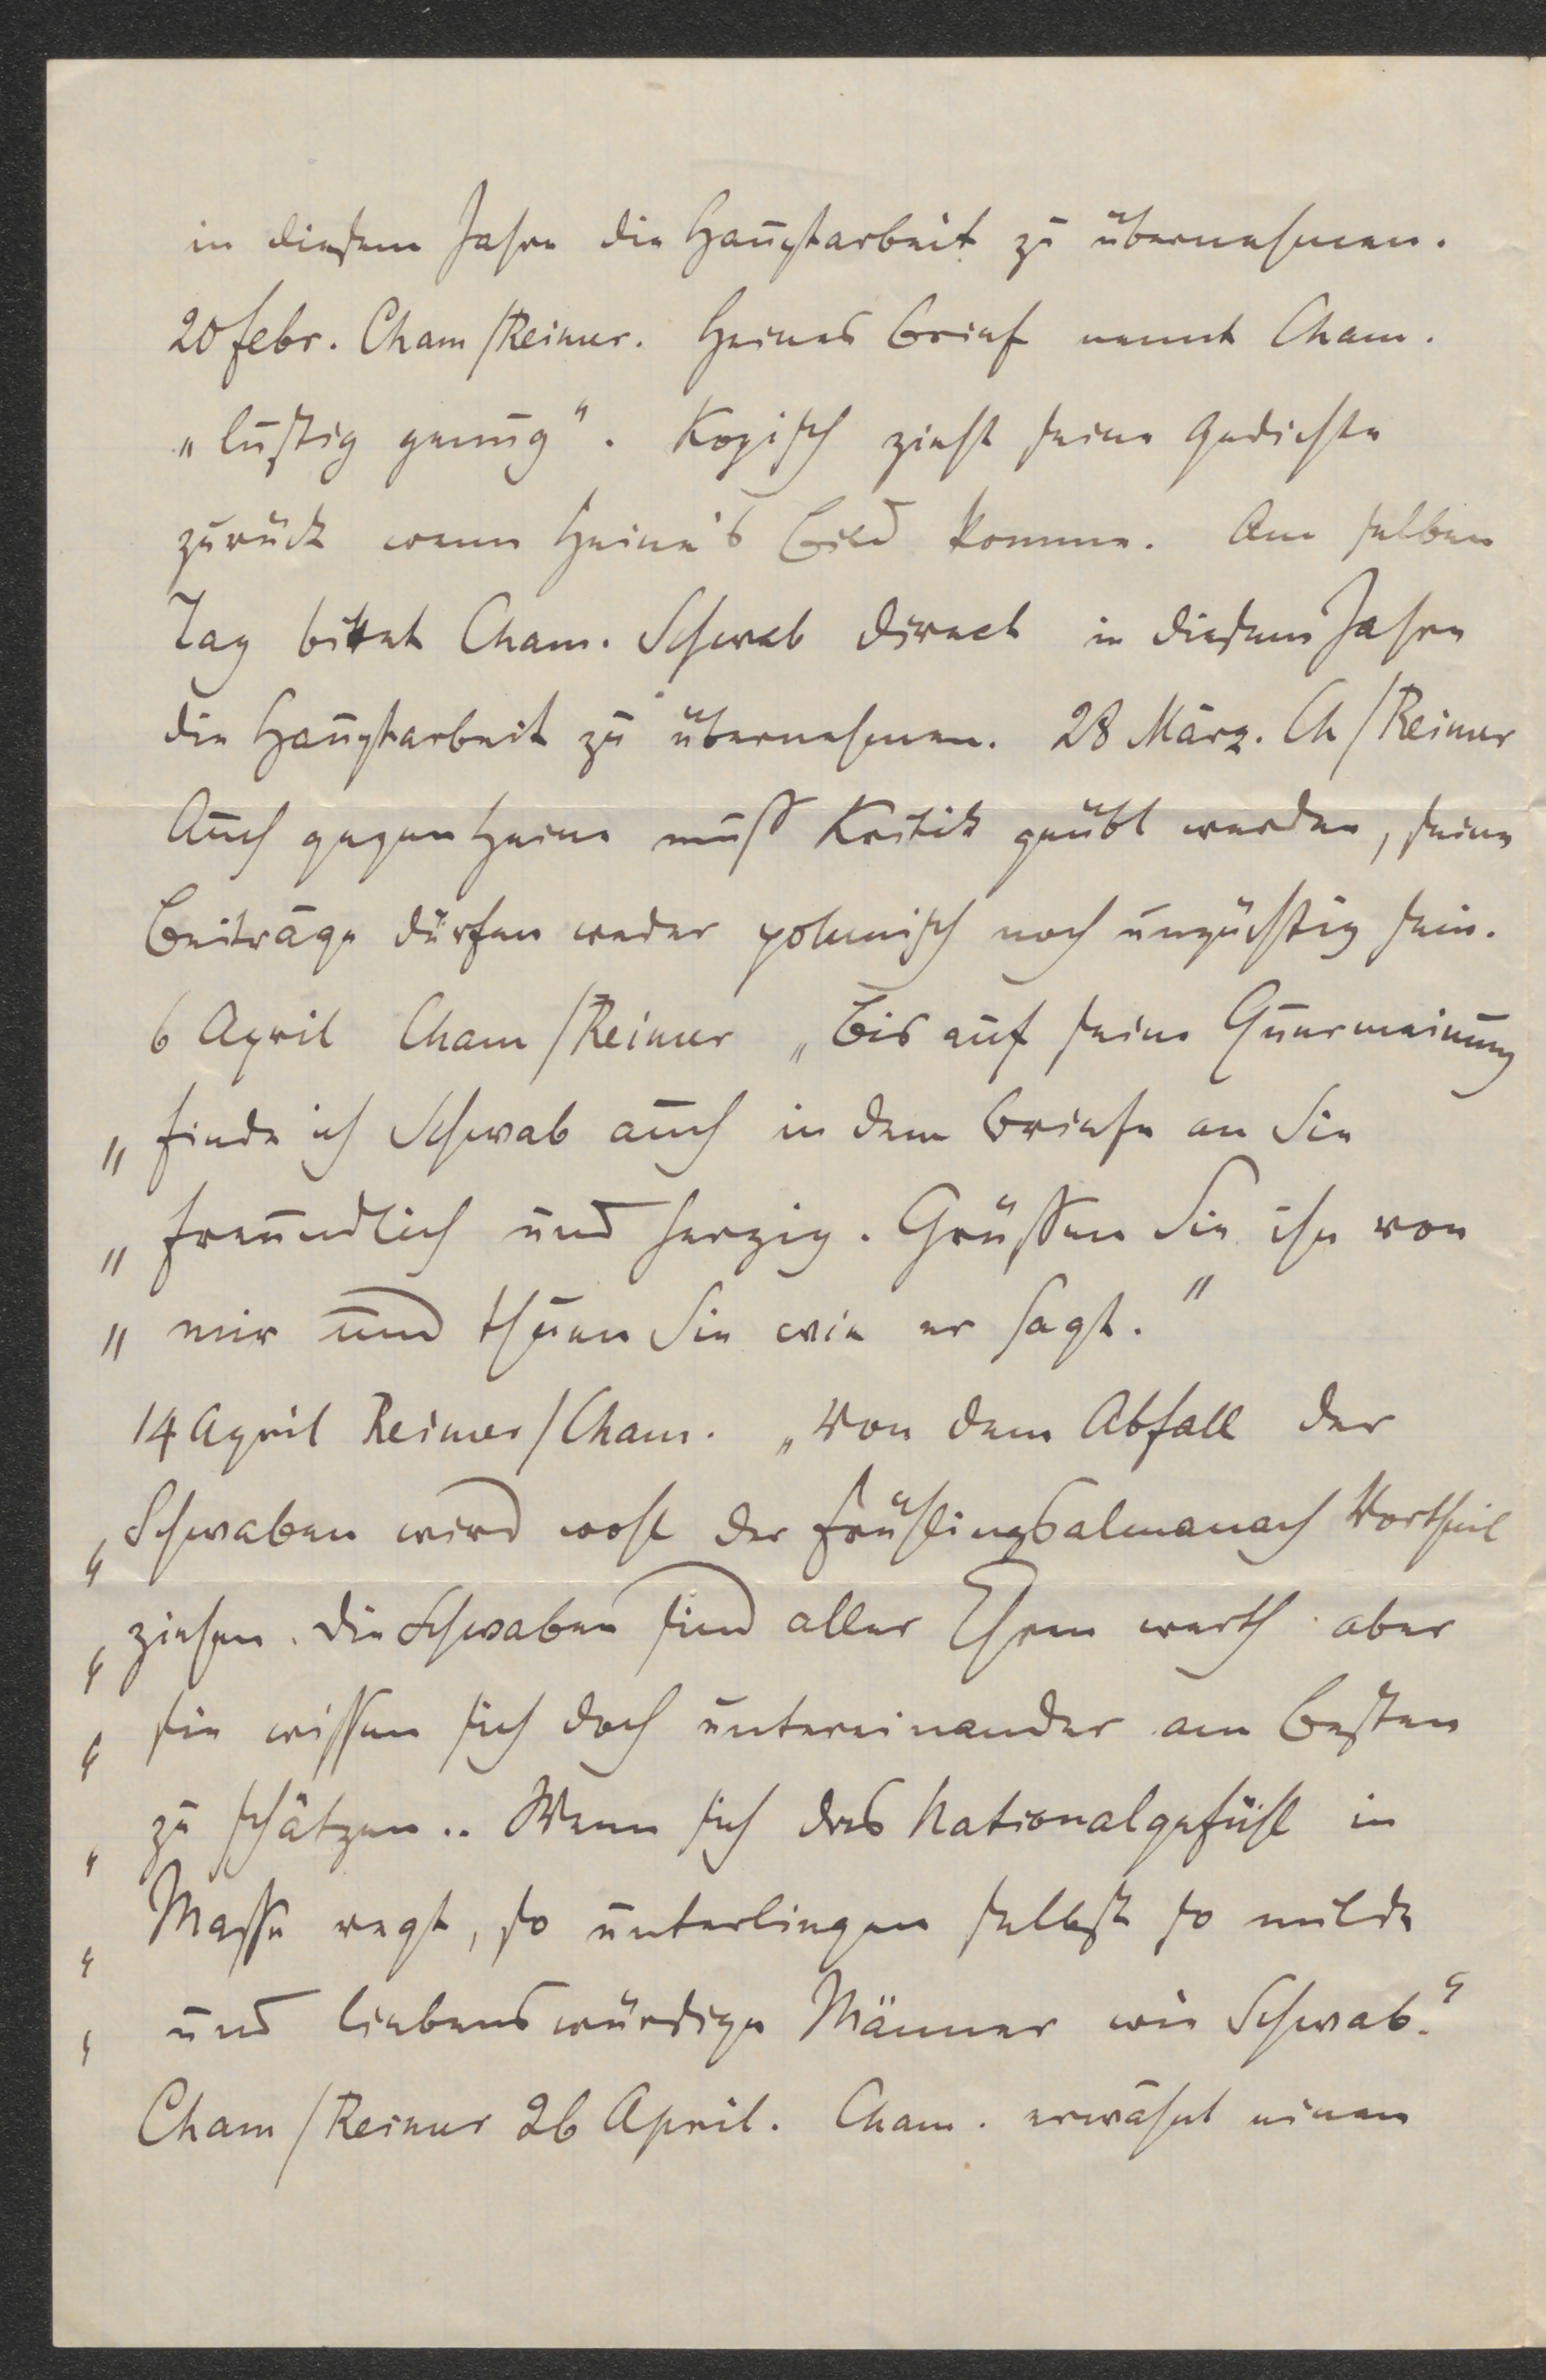 in diesem Jahre die Hauptarbeit zu übernehmen.
20 febr. Cham/Reimer. Heines Brief nennt Cham.
„lustig genug“. Kopisch zieht seine Gedichte
zurück wenn Heine's Bild komme. Am selben
Tag bittet Cham. Schwab direct in diesem Jahre
die Hauptarbeit zu übernehmen. 28 März. Ch/Reimer
Auch gegen Heine muss Kritik geübt werden, seine
Beiträge dürfen weder polemisch noch unzüchtig sein.
6 April Cham/Reimer „Bis auf seine Quermeinung
„ finde ich Schwab auch in dem Briefe an Sie
„ freundlich und herzig. Grüssen Sie ihn von
„ mir und thuen Sie wie er sagt.“
14 April Reimer/Cham. „Von dem Abfall der
„ Schwaben wird wohl der Frühlingsalmanach Vortheil
„ ziehen. Die Schwaben sind aller Ehren werth aber
„ sie wissen sich doch untereinander am Besten
„ zu schätzen.. Wenn sich das Nationalgefühl in
„ Masse regt, so unterliegen selbst so milde
„ und liebenswürdige Männer wie Schwab.“
Cham/Reimer 26 April. Cham. erwähnt einen